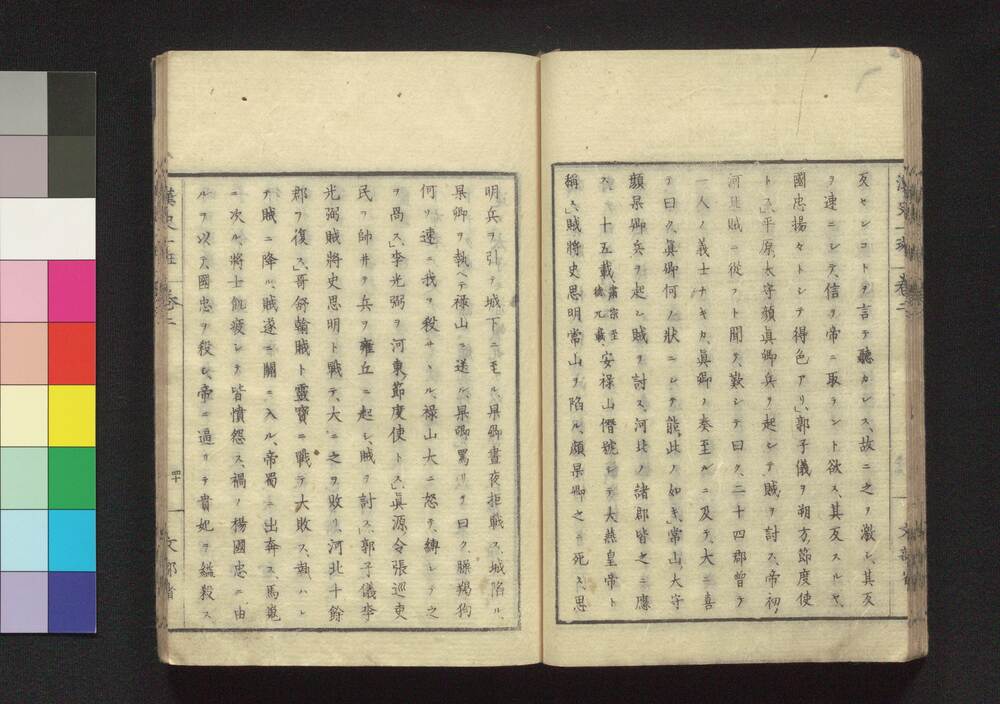 反センコトヲ言テ聴カレス、故ニ之ヲ激シ、其反
ヲ速ニシテ、信ヲ帝ニ取ラント欲ス、其反スルヤ、
國忠揚々トシテ得色アリ、郭子儀ヲ朔方節度使
トス、平原太守顔眞卿兵ヲ起シテ賊ヲ討ス、帝初メ
河北賊ニ從フト聞テ、歎シテ曰ク、二十四郡曾テ
一人ノ義士ナキカ、眞卿ノ奏至ルニ及テ、大ニ喜
テ曰ク、眞卿何ノ狀ニシテ能此ノ如キ、常山太守
顔杲卿兵ヲ起シ賊ヲ討ス、河北ノ諸郡皆之ニ應
ス、十五載肅宗至德元載安禄山僭號シテ大燕皇帝ト
稱ス、賊將史思明常山ヲ陷ル、顔杲卿之ニ死ス、思
明兵ヲ引テ城下ニ至ル、杲卿晝夜拒戰ス、城陷ル、
杲卿ヲ執ヘテ禄山ニ送ル、杲卿罵リテ曰ク、臊羯狗
何ソ速ニ我ヲ殺サヽル、禄山大ニ怒テ、縛シテ之
ヲ冎ス、李光弼ヲ河東節度使トス、眞源令張巡吏
民ヲ帥井テ兵ヲ雍丘ニ起シ、賊ヲ討ス、郭子儀李
光弼賊將史思明ト戰テ、大ニ之ヲ敗リ、河北十餘
郡ヲ復ス、哥舒翰賊ト靈寳ニ戰テ大敗ス、執ハレ
テ賊ニ降ル、賊遂ニ關ニ入ル、帝蜀ニ出奔ス、馬嵬
ニ次ル、將士飢疲シテ皆憤怨ス、禍ノ楊國忠ニ由
ルヲ以テ、國忠ヲ殺シ、帝ニ逼リテ貴妃ヲ縊殺ス
漢史一班 卷二 四十 文部省